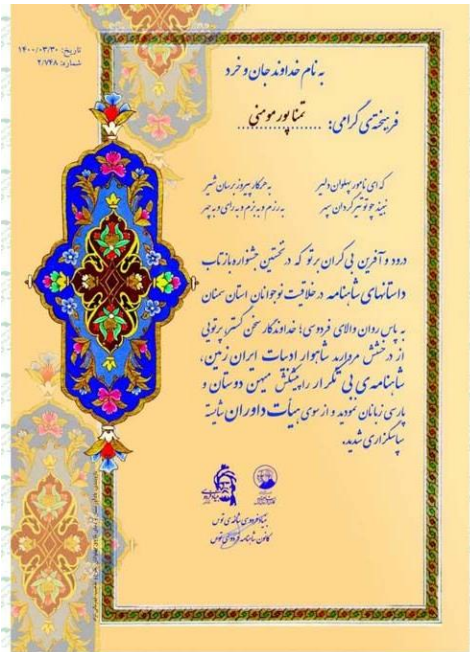 تاریخ: ۱۴۰۰/۰۳/۳۰
شماره: ۲/۷۴۸
به نام خداوند جان و خرد
فرهیخته‌ی گرامی: تمنا پور مومنی
که ای نامور پهلوان دلیر به هر کار پیروز برسان شیر
نبیند چو تو نیز گردان سپهر به رزم و به بزم و به رای و به چهر
درود و آفرین بی کران بر تو که در نخستین جشنواره بازتاب
داستانهای شاهنامه در خلاقیت نوجوانان استان سمنان
به پاس روان والای فردوسی؛ خداوندگار سخن گستر پرتویی
از درخشش مروارید شاهوار ادبیات ایران زمین،
شاهنامه‌ی بی تکرار را پیشکش میهن دوستان و
پارسی زبانان نمودید و از سوی هیأت داوران شایسته
سپاسگزاری شدید.
بنیاد فردوسی شاخه‌ی توس
کانون شاهنامه فردوسی توس